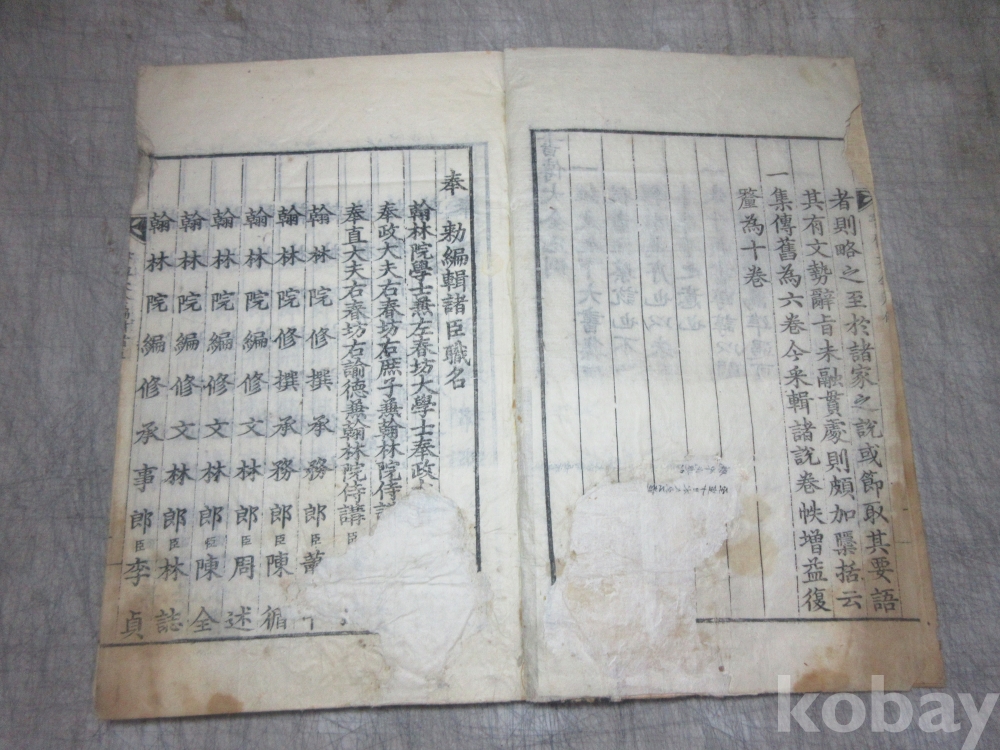 者則略之至於諸家之說或節取其要語
其有文勢辭旨未融貫處則頗加檃括云
一集傳舊為六卷今采輯諸說卷帙增益復
釐為十卷
奉 勅編輯諸臣職名
翰林院學士兼左春坊大學士奉政
奉政大夫右春坊右庶子兼翰林院侍
奉直大夫右春坊右諭德兼翰林院侍講臣
翰林院修撰承務郎臣蕭
翰林院修撰承務郎臣陳 循
翰林院編修文林郎臣周 述
翰林院編修文林郎臣陳 全
翰林院編修文林郎臣林 誌
翰林院編修承事郎臣李 貞
kobay